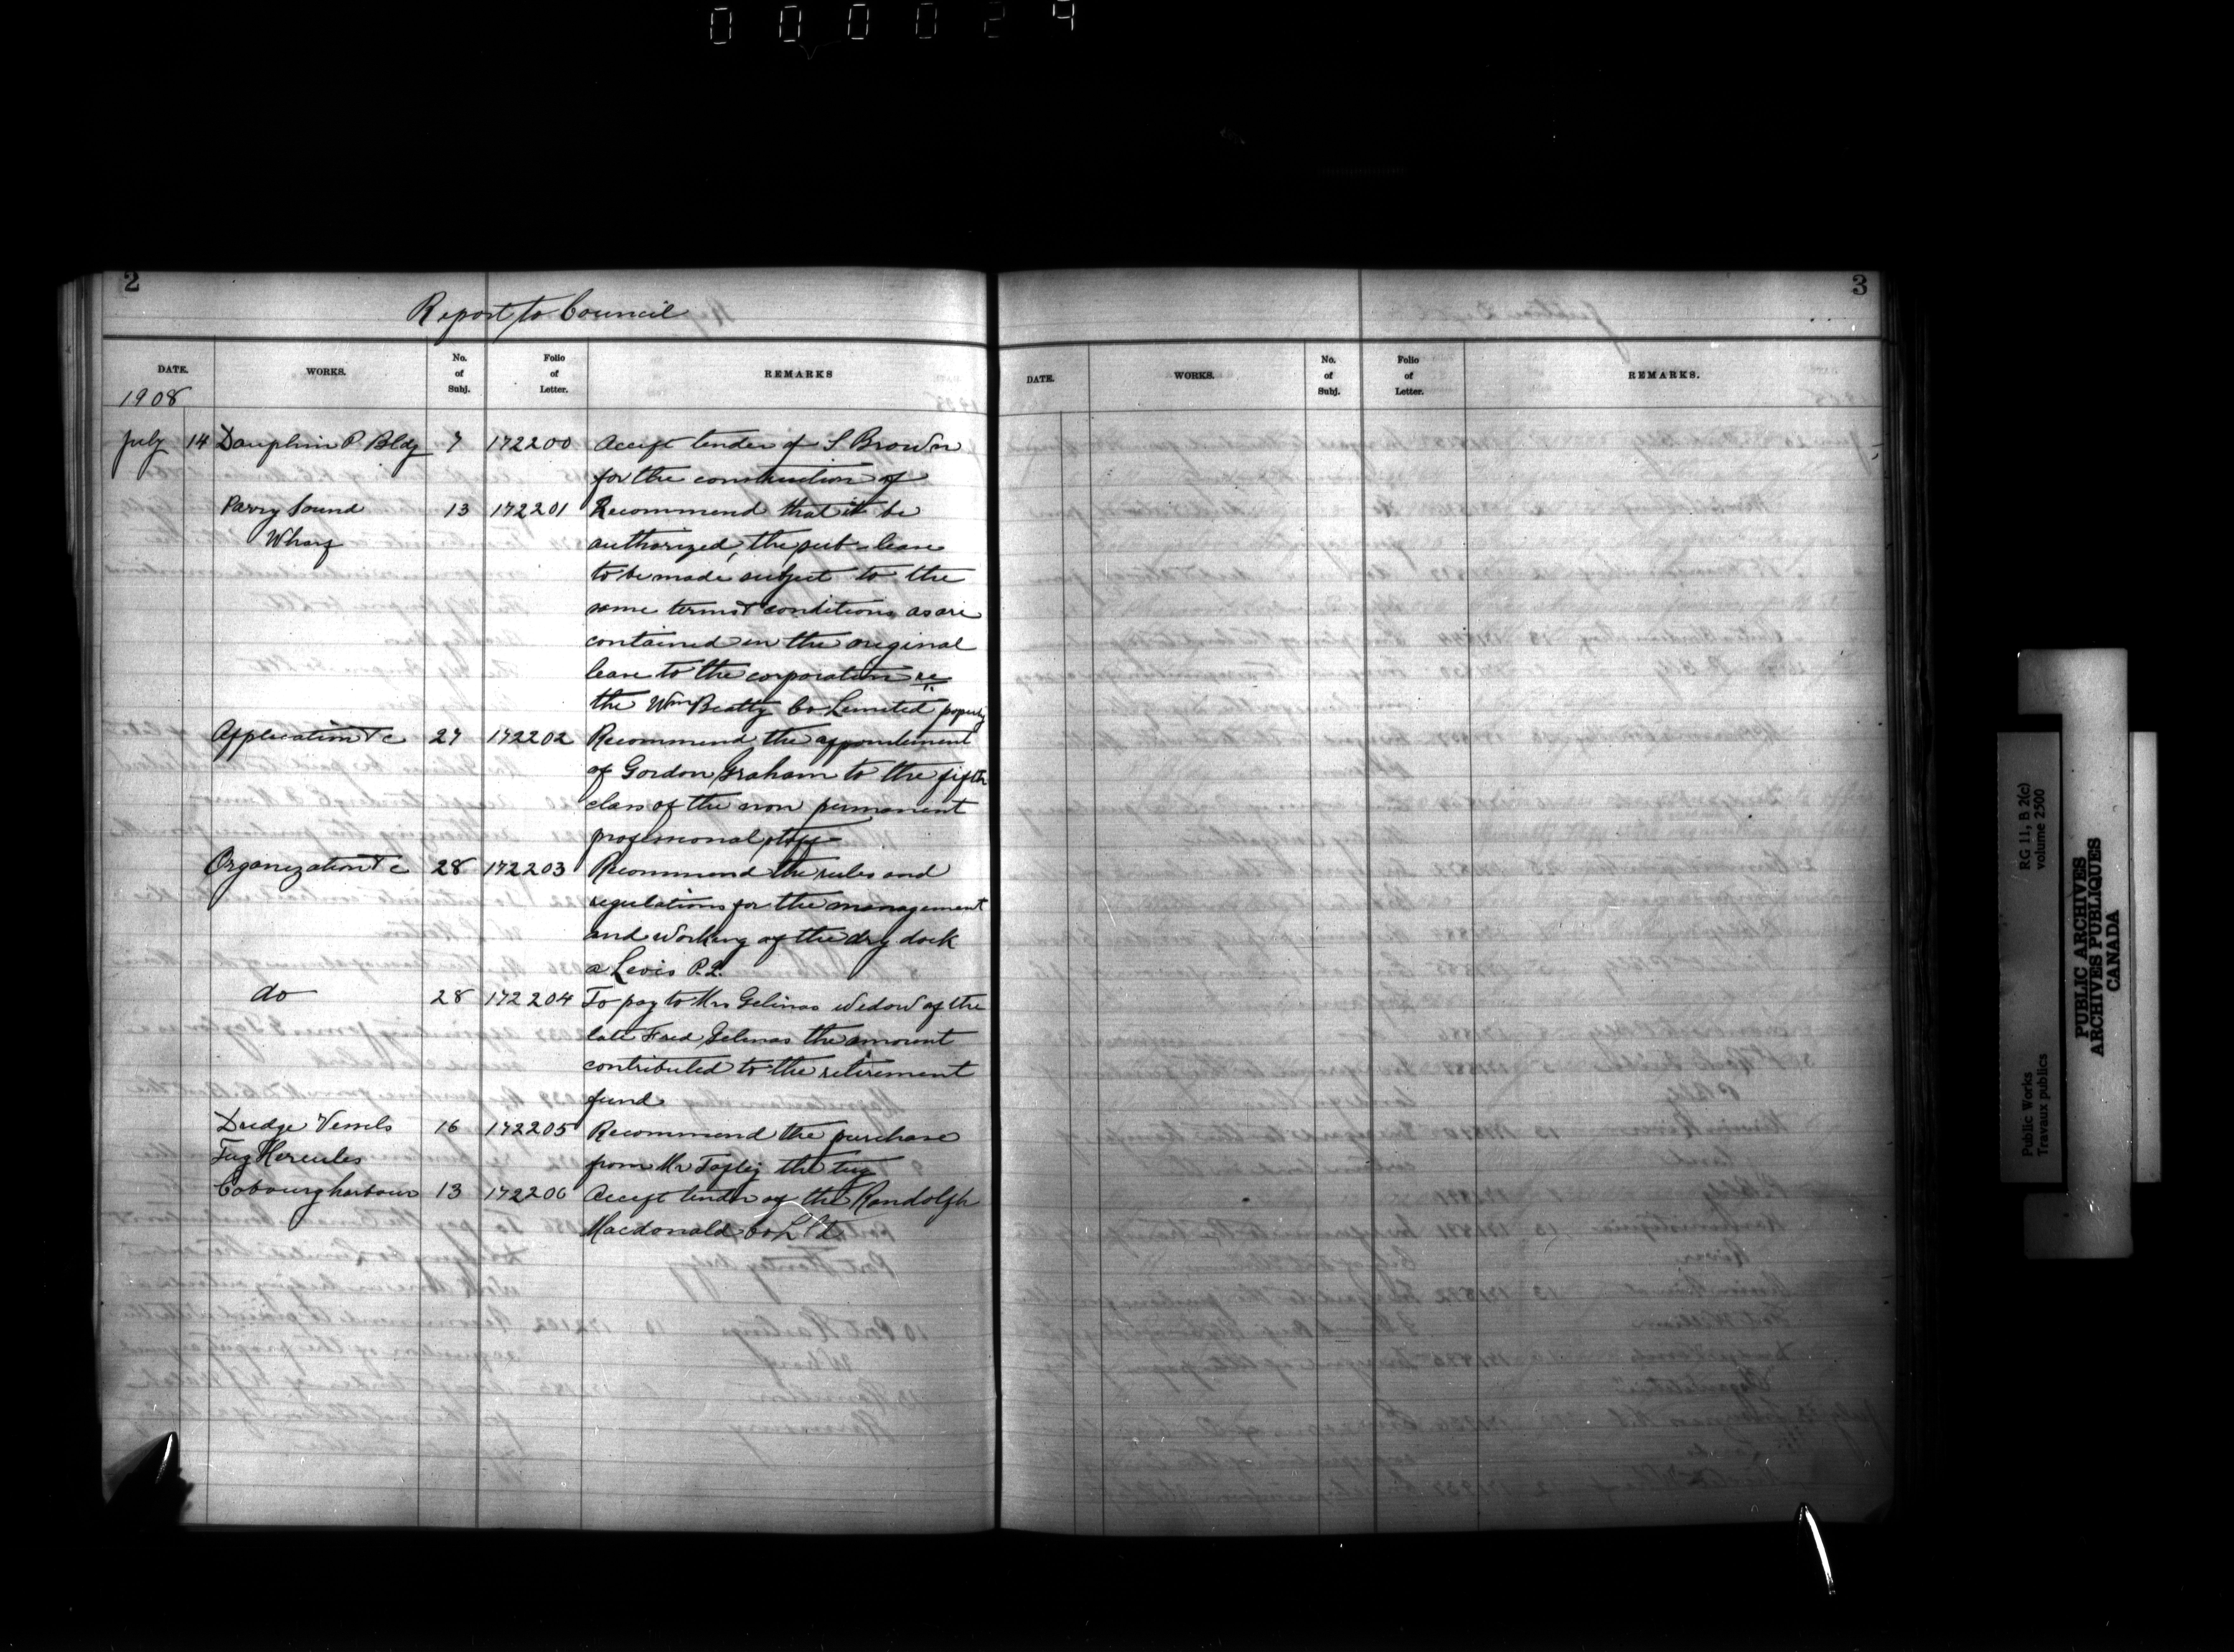 000029
2
Report to Council
DATE. WORKS. No. of Subj. Folio of Letter. REMARKS
1908
July 14 Dauphin P. Bldg 7 172200 Accept tender of S Brown
for the construction of
Parry Sound 13 172201 Recommend that it be
Wharf authorized, the sub-lease
to be made subject to the
same terms & conditions as are
contained in the original
lease to the corporation re
the Wm Beatty Co Limited property
Application &c 27 172202 Recommend the appointment
of Gordon Graham to the fifth
class of the non permanent
professional staff
Organization &c 28 172203 Recommend the rules and
regulations for the management
and working of the dry dock
a Levis P.Q.
do 28 172204 To pay to Mrs Gelinas widow of the
late Fred Gelinas the amount
contributed to the retirement
fund
Dredge Vessels 16 172205 Recommend the purchase
Tug Hercules from Mr the tug
Cobourg harbour 13 172206 Accept tender of the Randolph
Macdonald Co Ltd
3
DATE. WORKS. No. of Subj. Folio of Letter. REMARKS.
Public Works
Travaux publics
RG 11, B 2(c)
volume 2500
PUBLIC ARCHIVES
ARCHIVES PUBLIQUES
CANADA